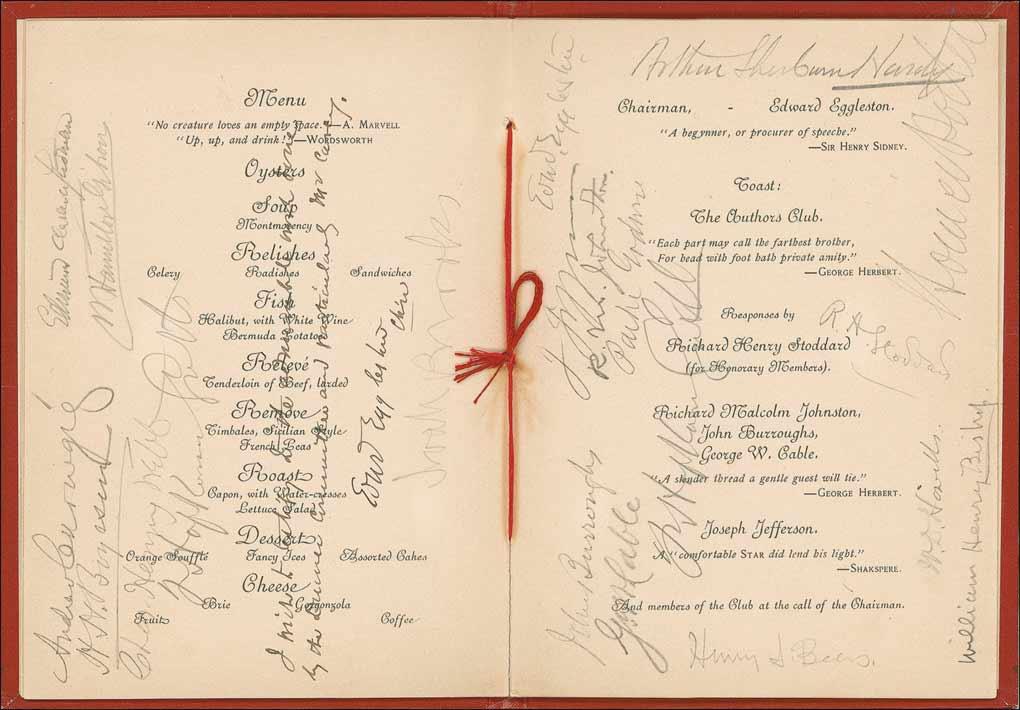 Menu
"No creature loves an empty space."—A. MARVELL
"Up, up, and drink!"—WORDSWORTH
Oysters
Soup
Montmorency
Relishes
Celery Radishes Sandwiches
Fish
Halibut, with White Wine
Bermuda Potatoes
Relevé
Tenderloin of Beef, larded
Remove
Timbales, Sicilian Style
French Peas
Roast
Capon, with Water-cresses
Lettuce Salad
Dessert
Orange Soufflé Fancy Ices Assorted Cakes
Cheese
Brie Gorgonzola
Fruit Coffee
Andrew Carnegie
H. H. Boyesen
W Hamilton Gibson
Edmund Clarence Stedman
by the Dinner Committee and particularly Mr Carey.
Edwd Eggleston
Chm
Noah Brooks
Arthur Sherburne Hardy
Chairman, - Edward Eggleston.
"A begynner, or procurer of speeche."
—SIR HENRY SIDNEY.
Toast:
The Authors Club.
"Each part may call the farthest brother,
For head with foot hath private amity."
—GEORGE HERBERT.
Responses by
Richard Henry Stoddard
(for Honorary Members).
R H Stoddard
Richard Malcolm Johnston,
John Burroughs,
George W. Cable.
"A slender thread a gentle guest will tie."
—GEORGE HERBERT.
Joseph Jefferson.
A "comfortable STAR did lend his light."
—SHAKSPERE.
And members of the Club at the call of the Chairman.
Edwd Eggleston
R. M. Johnston.
Parke Godwin
John Burroughs
G. W. Cable
Henry A. Beers.
W. D. Howells.
William Henry Bishop